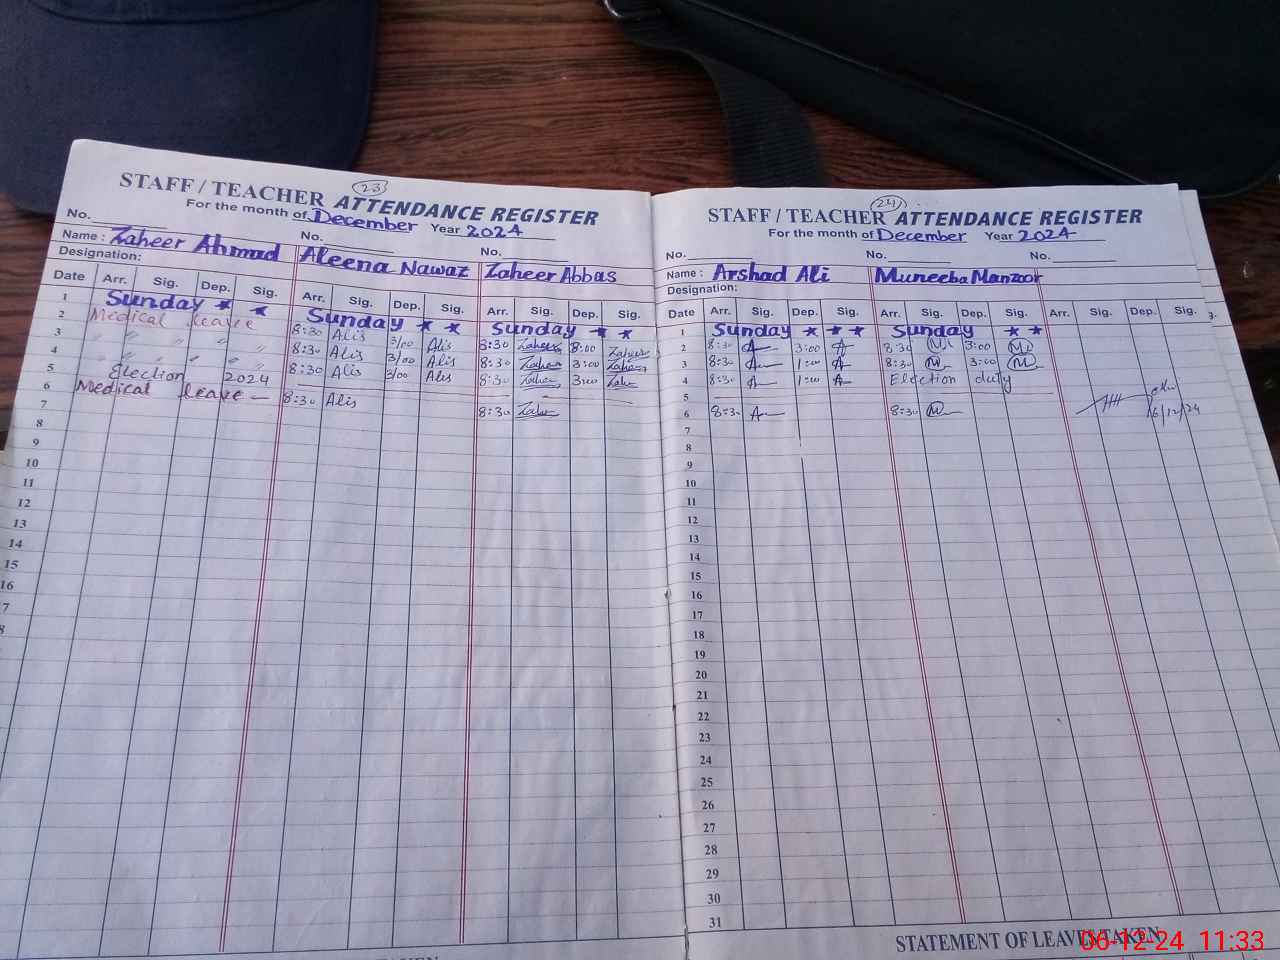 STAFF / TEACHER ATTENDANCE REGISTER
23
For the month of December Year 2024
No. No. No.
Name: Zaheer Ahmad Aleena Nawaz Zaheer Abbas
Designation:
Date Arr. Sig. Dep. Sig. Arr. Sig. Dep. Sig. Arr. Sig. Dep. Sig.
1 Sunday ★ ★ Sunday ★ ★ Sunday ★ ★
2 Medical leave 8:30 Alis 3/00 Alis 8:30 Zaheer 8:00 Zaheer
3 〃 〃 〃 〃 8:30 Alis 3/00 Alis 8:30 Zaheer 3:00 Zaheer
4 〃 〃 〃 〃 8:30 Alis 3/00 Alis 8:30 Zaheer 3:00
5 Election 2024
6 Medical leave – 8:30 Alis 8:30
7
8
9
10
11
12
13
14
15
16
7
8
STAFF / TEACHER ATTENDANCE REGISTER
24
For the month of December Year 2024
No. No. No.
Name: Arshad Ali Muneeba Manzoor
Designation:
Date Arr. Sig. Dep. Sig. Arr. Sig. Dep. Sig. Arr. Sig. Dep. Sig.
1 Sunday ★ ★ ★ Sunday ★ ★
2 8:30 3:00 8:30 3:00
3 8:30 1:00 8:30 3:00
4 8:30 1:00 Election duty
5
6 8:30 8:30 6/12/24
7
8
9
10
11
12
13
14
15
16
17
18
19
20
21
22
23
24
25
26
27
28
29
30
31
STATEMENT OF LEAVE TAKEN
06-12-24 11:33